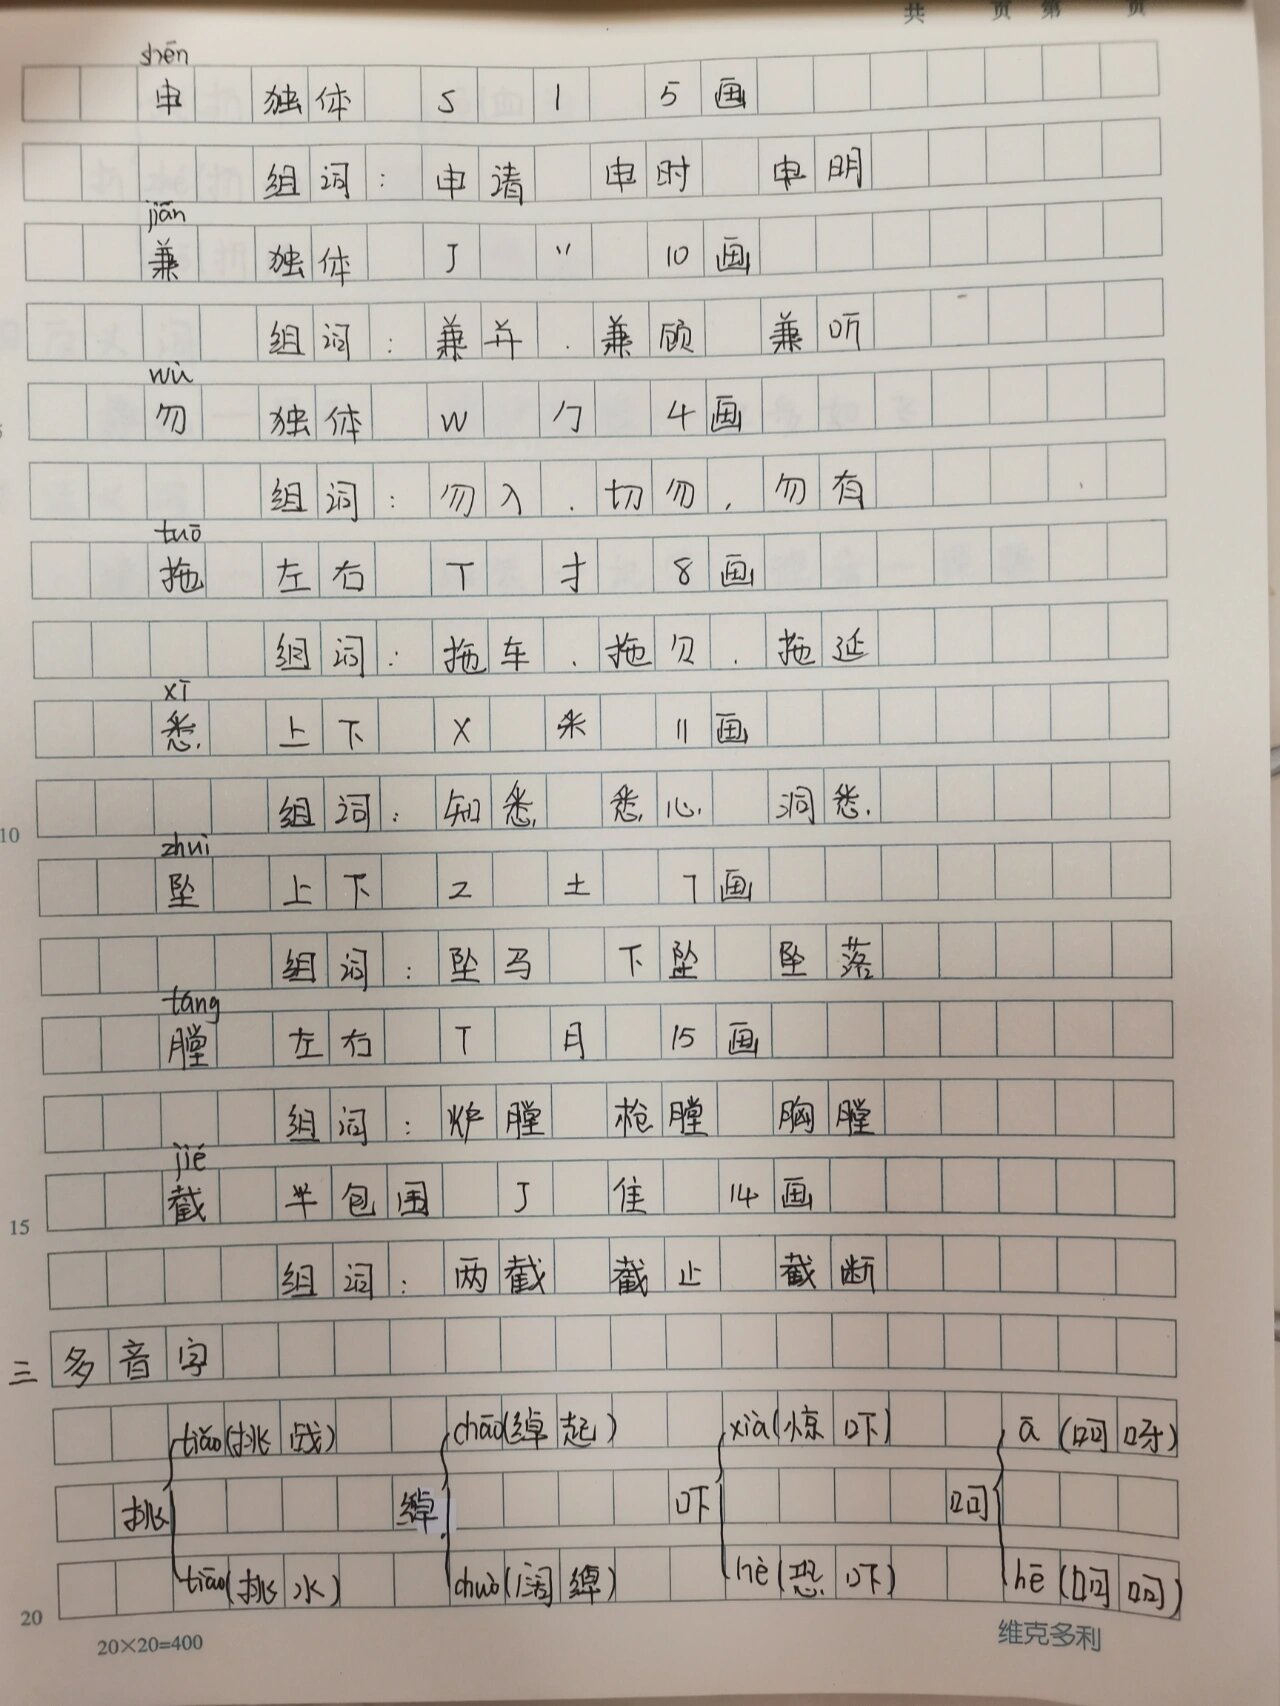 共 页 第 页
shēn
申 独体 S 丨 5画
组词：申请 申时 申明
jiān
兼 独体 J 丷 10画
组词：兼并．兼顾 兼听
wù
勿 独体 W 勹 4画
组词：勿入．切勿．勿有
tuō
拖 左右 T 扌 8画
组词：拖车．拖欠．拖延
xī
悉 上下 X 釆 11画
组词：知悉 悉心 洞悉
10
zhuì
坠 上下 Z 土 7画
组词：坠马 下坠 坠落
táng
膛 左右 T 月 15画
组词：炉膛 枪膛 胸膛
jié
截 半包围 J 隹 14画
15
组词：两截 截止 截断
三 多音字
tiǎo(挑战) chāo(绰起) xià(惊吓) ā(呵呀)
挑 绰 吓 呵
tiāo(挑水) chuò(阔绰) hè(恐吓) hē(呵呵)
20
20×20=400 维克多利